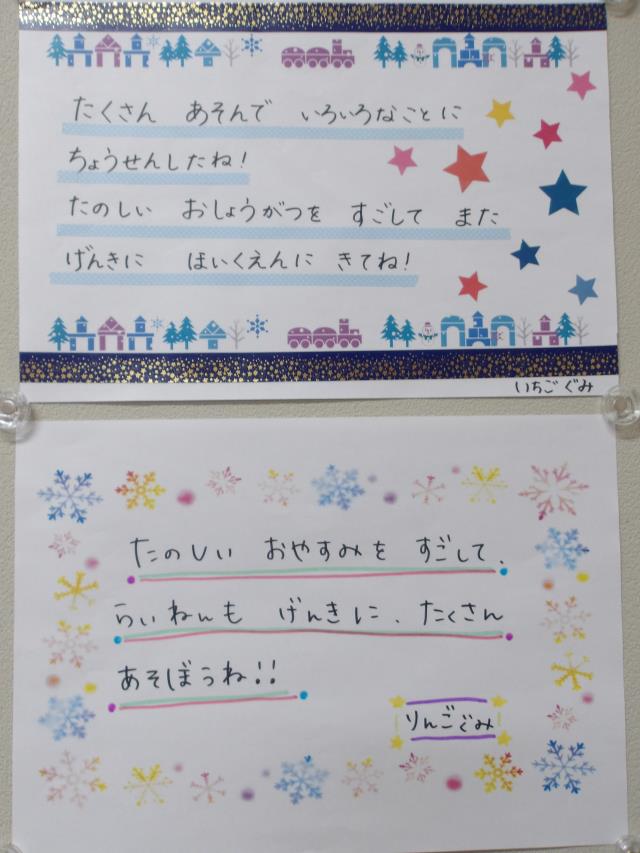 たくさん あそんで いろいろなことに
ちょうせんしたね!
たのしい おしょうがつを すごして また
げんきに ほいくえんに きてね!
いちごぐみ
たのしい おやすみを すごして、
らいねんも げんきに、たくさん
あそぼうね!!
りんごぐみ